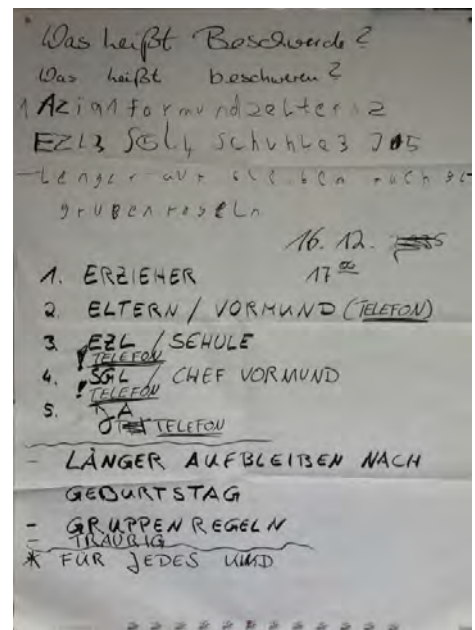 Was heißt Beschwerde?
Was heißt beschweren?
1 Azign formundzeltern 2
EZL3 SGL4 Schuhle3 JA5
-Lenger auf bleiben nach ge
grupenregeln
16. 12.
17 00
1. ERZIEHER
2. ELTERN / VORMUND (TELEFON)
3 EZL / SCHULE
! TELEFON
4. SGL / CHEF VORMUND
! TELEFON
5. JA
TELEFON
- LÄNGER AUFBLEIBEN NACH
GEBURTSTAG
- GRUPPENREGELN
- TRAURIG
* FÜR JEDES KIND